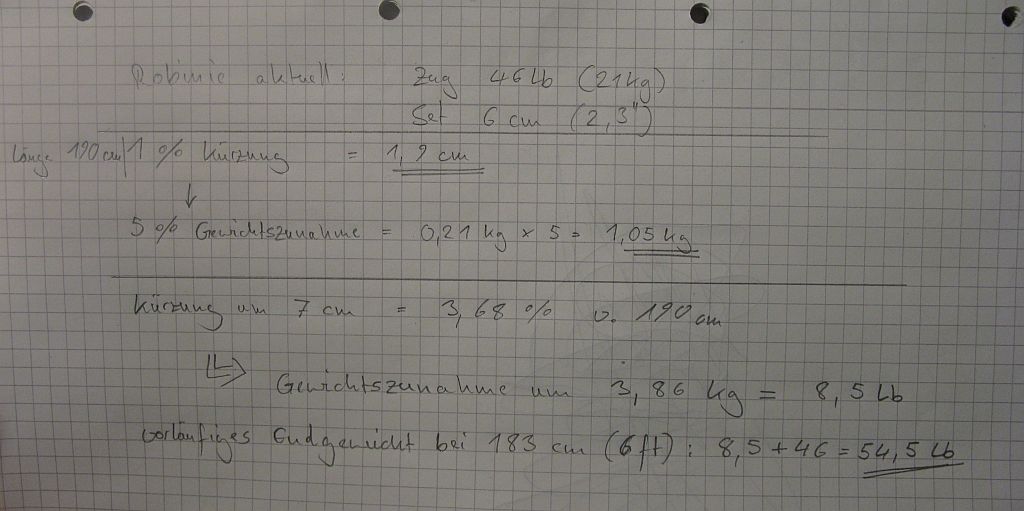 Robinie aktuell: Zug 46 Lb (21 kg)
Set 6 cm (2,3")
Länge 190 cm/1 % Kürzung = 1,9 cm
↓
5 % Gewichtszunahme = 0,21 kg × 5 = 1,05 kg
Kürzung um 7 cm = 3,68 % v. 190 cm
Gewichtszunahme um 3,86 kg = 8,5 Lb
vorläufiges Endgewicht bei 183 cm (6 ft): 8,5 + 46 = 54,5 Lb